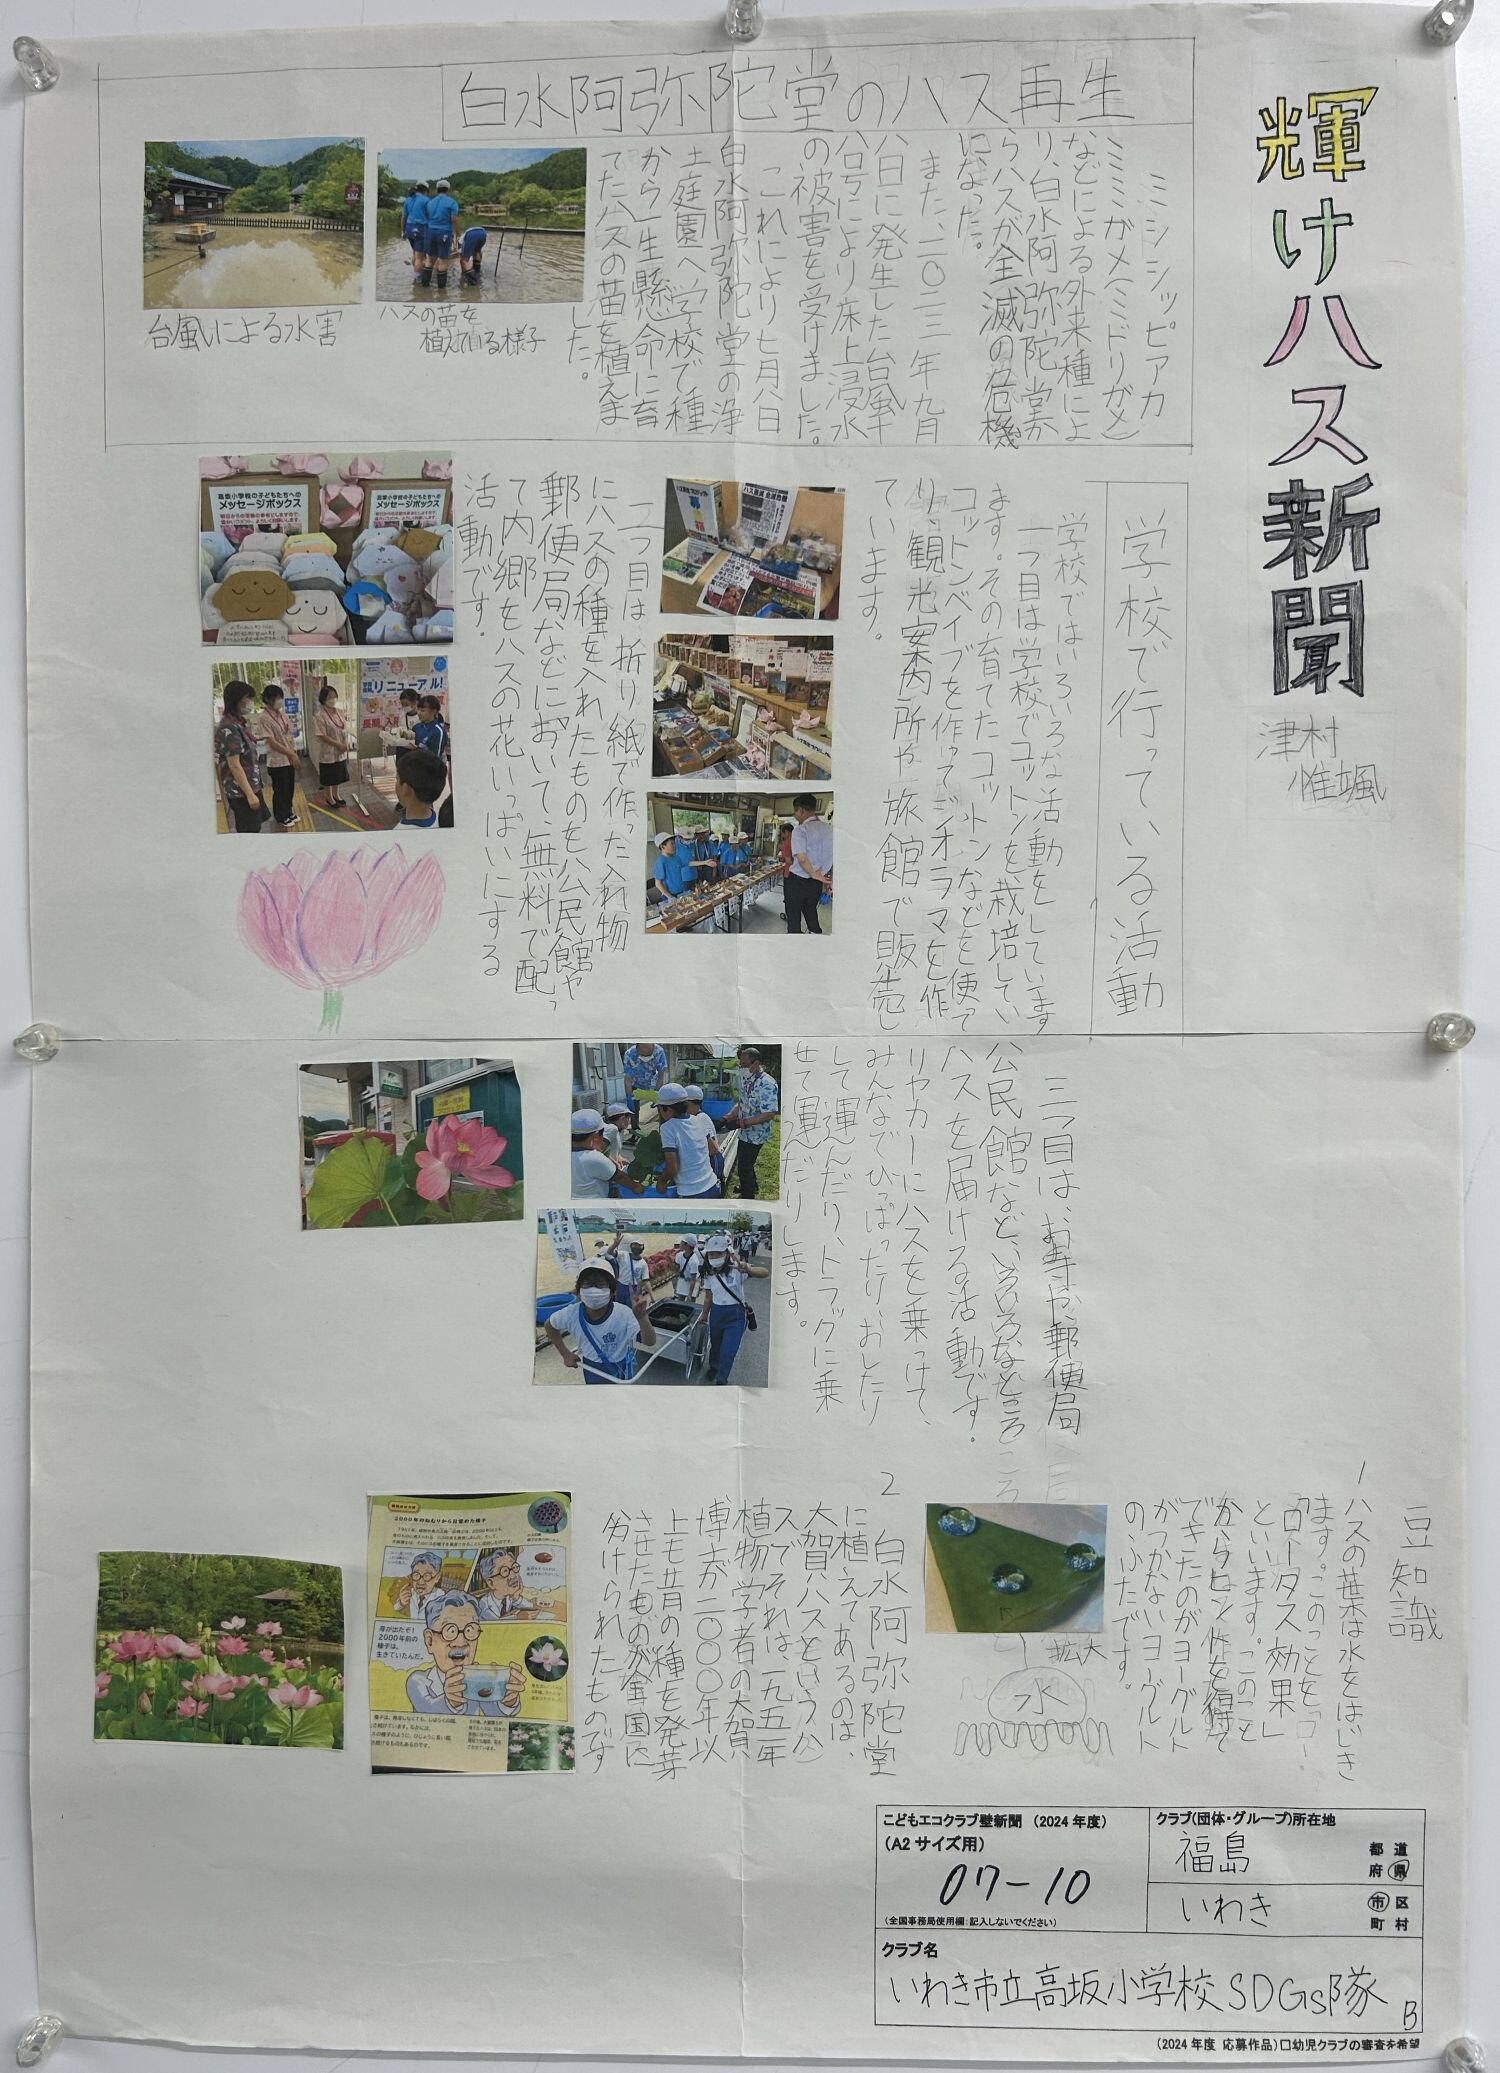 輝けハス新聞
津村
惟颯
白水阿弥陀堂のハス再生
ミシシッピアカ
ミミガメ(ミドリガメ)
などによる外来種によ
り、白水阿弥陀堂か
らハスが全滅の危機
になった。
また、二〇二三年九月
八日に発生した台風十
八号により床上浸水
の被害を受けました。
これにより七月八日
白水阿弥陀堂の浄
土庭園へ学校で種
から一生懸命に育
てたハスの苗を植えま
した。
ハスの苗を
植えている様子
台風による水害
学校で行っている活動
学校ではいろいろな活動をしています
一つ目は学校でコットンを栽培してい
ます。その育てたコットンなどを使って
コットンベイブを作ってジオラマを作
り、観光案内所や旅館で販売し
ています。
二つ目は、折り紙で作った入れ物
にハスの種を入れたものを公民館や
郵便局などにおいて、無料で配っ
て内郷をハスの花いっぱいにする
活動です。
高坂小学校の子どもたちへの
メッセージボックス
メッセージボックス
リニューアル!
三つ目は、お寺や、郵便局
公民館など、いろいろなところ
ハスを届ける活動です。
リヤカーにハスを乗っけて、
みんなでひっぱったり、おしたり
して運んだり、トラックに乗
せて運んだりします。
豆知識
1 ハスの葉は水をはじき
ます。このことを「ロー
「ロータス効果」
といいます。このこと
からヒントを得て
できたのがヨーグルト
がつかないヨーグルト
のふたです。
拡大
水
2 白水阿弥陀堂
に植えてあるのは、
大賀ハスという(ハ)
スでそれは、一九五一年
植物学者の大賀一
博士が二〇〇〇年以
上も前の種を発芽
させたものが全国に
分けられたものです
2000年のねむりから目覚めた種子
芽が出たぞ!
2000年前の
種子は、
生きていたんだ。
こどもエコクラブ壁新聞 (2024年度)
(A2サイズ用)
07-10
(全国事務局使用欄:記入しないでください)
クラブ(団体・グループ)所在地
福島
都 道
府 県
いわき
市 区
町 村
クラブ名
いわき市立高坂小学校SDGs隊
B
(2024年度 応募作品)□幼児クラブの審査を希望